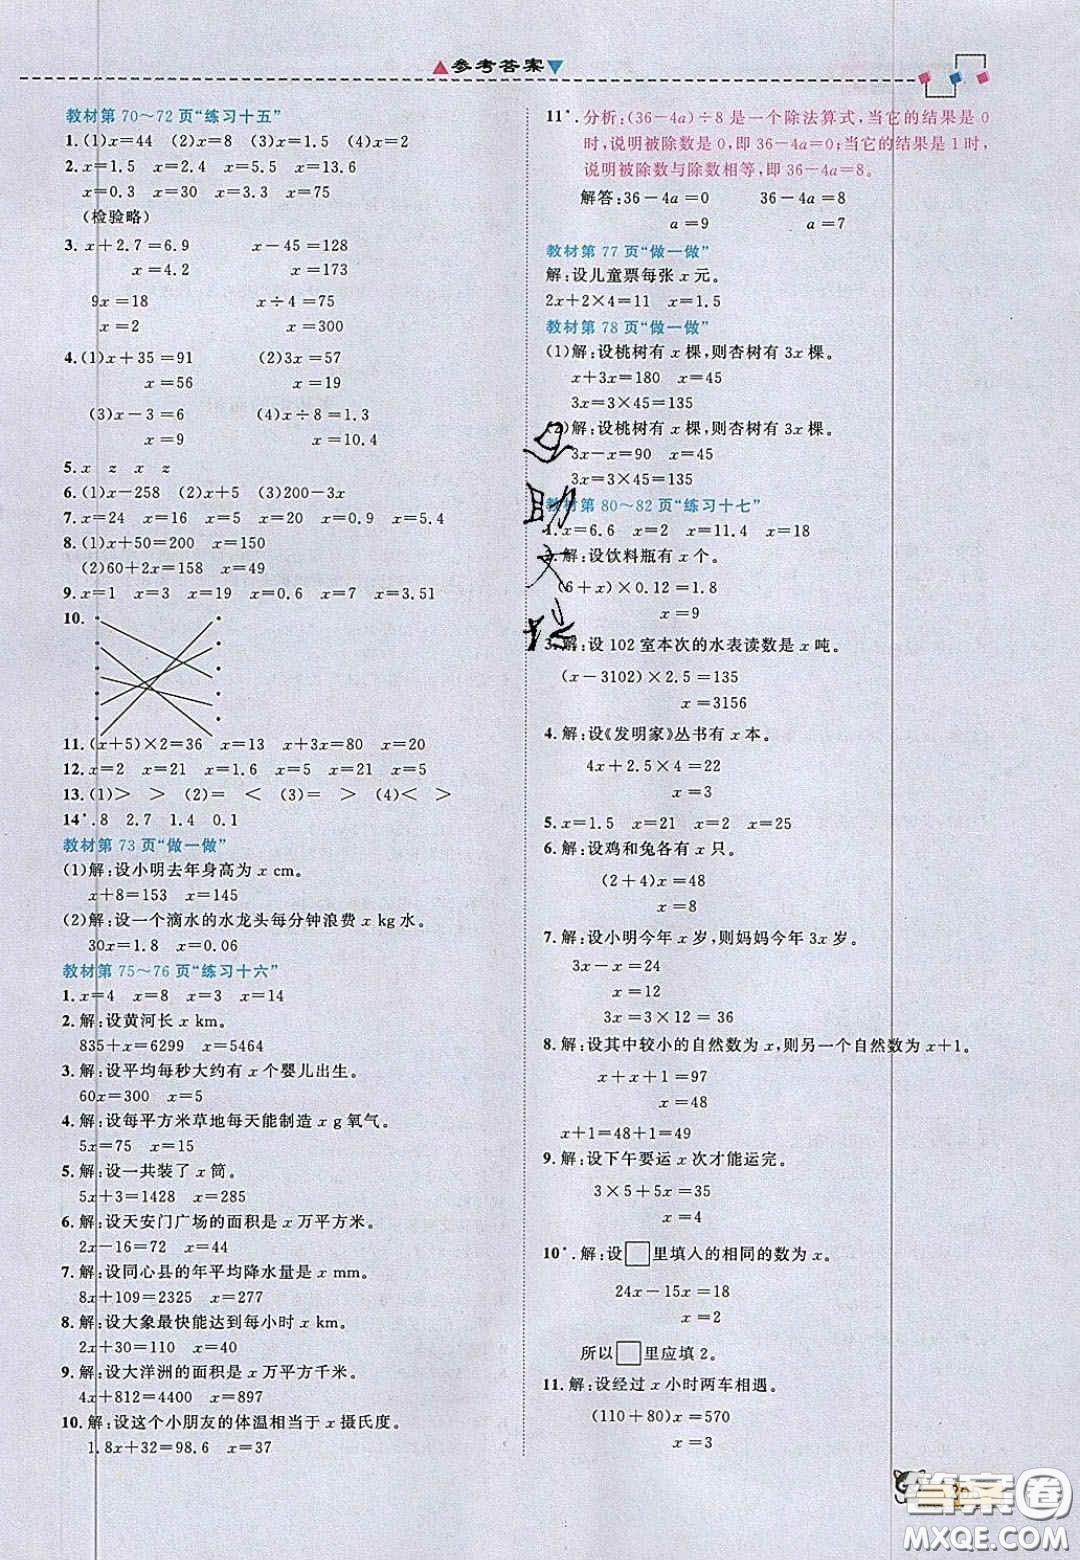 参考答案
教材第70～72页“练习十五”
1.(1)x=44 (2)x=8 (3)x=1.5 (4)x=2
2.x=1.5 x=2.4 x=5.5 x=13.6
x=0.3 x=30 x=3.3 x=75
(检验略)
3.x+2.7=6.9 x-45=128
x=4.2 x=173
9x=18 x÷4=75
x=2 x=300
4.(1)x+35=91 (2)3x=57
x=56 x=19
(3)x-3=6 (4)x÷8=1.3
x=9 x=10.4
5.x z x z
6.(1)x-258 (2)x+5 (3)200-3x
7.x=24 x=16 x=5 x=9 x=5.4
8.(1)x+50=200 x=150
(2)60+2x=158 x=49
9.x=1 x=3 x=19 x=0.6 x=7 x=3.51
10.
11.(x+5)×2=36 x=13 x+3x=80 x=20
12.x=2 x=21 x=1.6 x=5 x=21 x=2
13.(1)> > (2)= < (3)= > (4)< >
14*.8 2.7 1.4 0.1
教材第73页“做一做”
(1)解:设小明去年身高为x cm。
x+8=153 x=145
(2)解:设一个滴水的水龙头每分钟浪费x kg水。
30x=1.8 x=0.06
教材第75～76页“练习十六”
1.x=4 x=8 x=3 x=14
2.解:设黄河长x km。
835+x=6299 x=5464
3.解:设平均每秒大约有x个婴儿出生。
60x=300 x=5
4.解:设每平方米草地每天能制造x g氧气。
5x=75 x=15
5.解:设一共装了x筒。
5x+3=1428 x=285
6.解:设天安门广场的面积是x万平方米。
2x-16=72 x=44
7.解:设同心县的年平均降水量是x mm。
8x+109=2325 x=277
8.解:设大象最快能达到每小时x km。
2x+30=110 x=40
9.解:设大洋洲的面积是x万平方千米。
4x+812=4400 x=897
10.解:设这个小朋友的体温相当于x摄氏度。
1.8x+32=98.6 x=37
11*.分析:(36-4a)÷8是一个除法算式,当它的结果是0
时,说明被除数是0,即36-4a=0;当它的结果是1时,
说明被除数与除数相等,即36-4a=8。
解答:36-4a=0 36-4a=8
a=9 a=7
教材第77页“做一做”
解:设儿童票每张x元。
2x+2×4=11 x=1.5
教材第78页“做一做”
(1)解:设桃树有x棵,则杏树有3x棵。
x+3x=180 x=45
3x=3×45=135
(2)解:设桃树有x棵,则杏树有3x棵。
3x-x=90 x=45
3x=3×45=135
教材第80～82页“练习十七”
1.x=6.6 x=2 x=11.4 x=18
2.解:设饮料瓶有x个。
(6+x)×0.12=1.8
x=9
3.解:设102室本次的水表读数是x吨。
(x-3102)×2.5=135
x=3156
4.解:设《发明家》丛书有x本。
4x+2.5×4=22
x=3
5.x=1.5 x=21 x=2 x=25
6.解:设鸡和兔各有x只。
(2+4)x=48
x=8
7.解:设小明今年x岁,则妈妈今年3x岁。
3x-x=24
x=12
3x=3×12=36
8.解:设其中较小的自然数为x,则另一个自然数为x+1。
x+x+1=97
x=48
x+1=48+1=49
9.解:设下午要运x次才能运完。
3×5+5x=35
x=4
10*.解:设□里填人的相同的数为x。
24x-15x=18
x=2
所以□里应填2。
11.解:设经过x小时两车相遇。
(110+80)x=570
x=3
答案卷
MXQE.COM